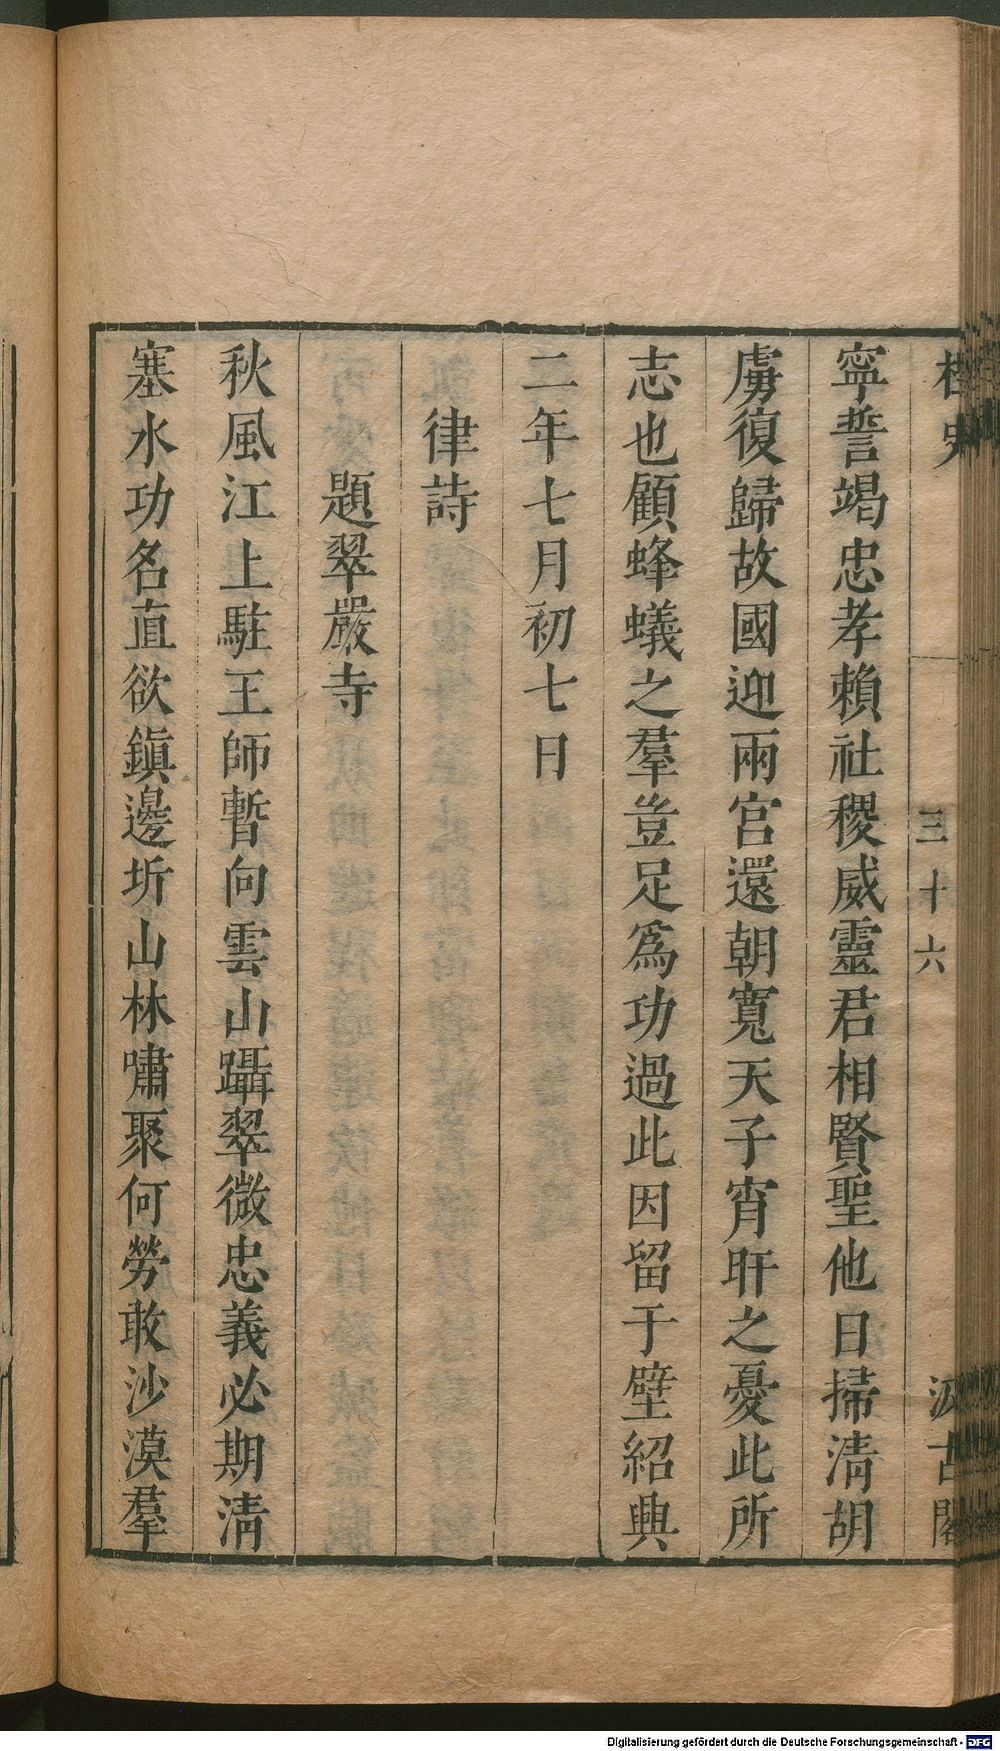 桯史
三十六
汲古閣
寧誓竭忠孝賴社稷威靈君相賢聖他日掃清胡
虜復歸故國迎兩宮還朝寬天子宵旰之憂此所
志也顧蜂蟻之羣豈足爲功過此因留于壁紹興
二年七月初七日
律詩
題翠嚴寺
秋風江上駐王師暫向雲山躡翠微忠義必期清
塞水功名直欲鎮邊圻山林嘯聚何勞敢沙漠羣
Digitalisierung gefördert durch die Deutsche Forschungsgemeinschaft - DFG